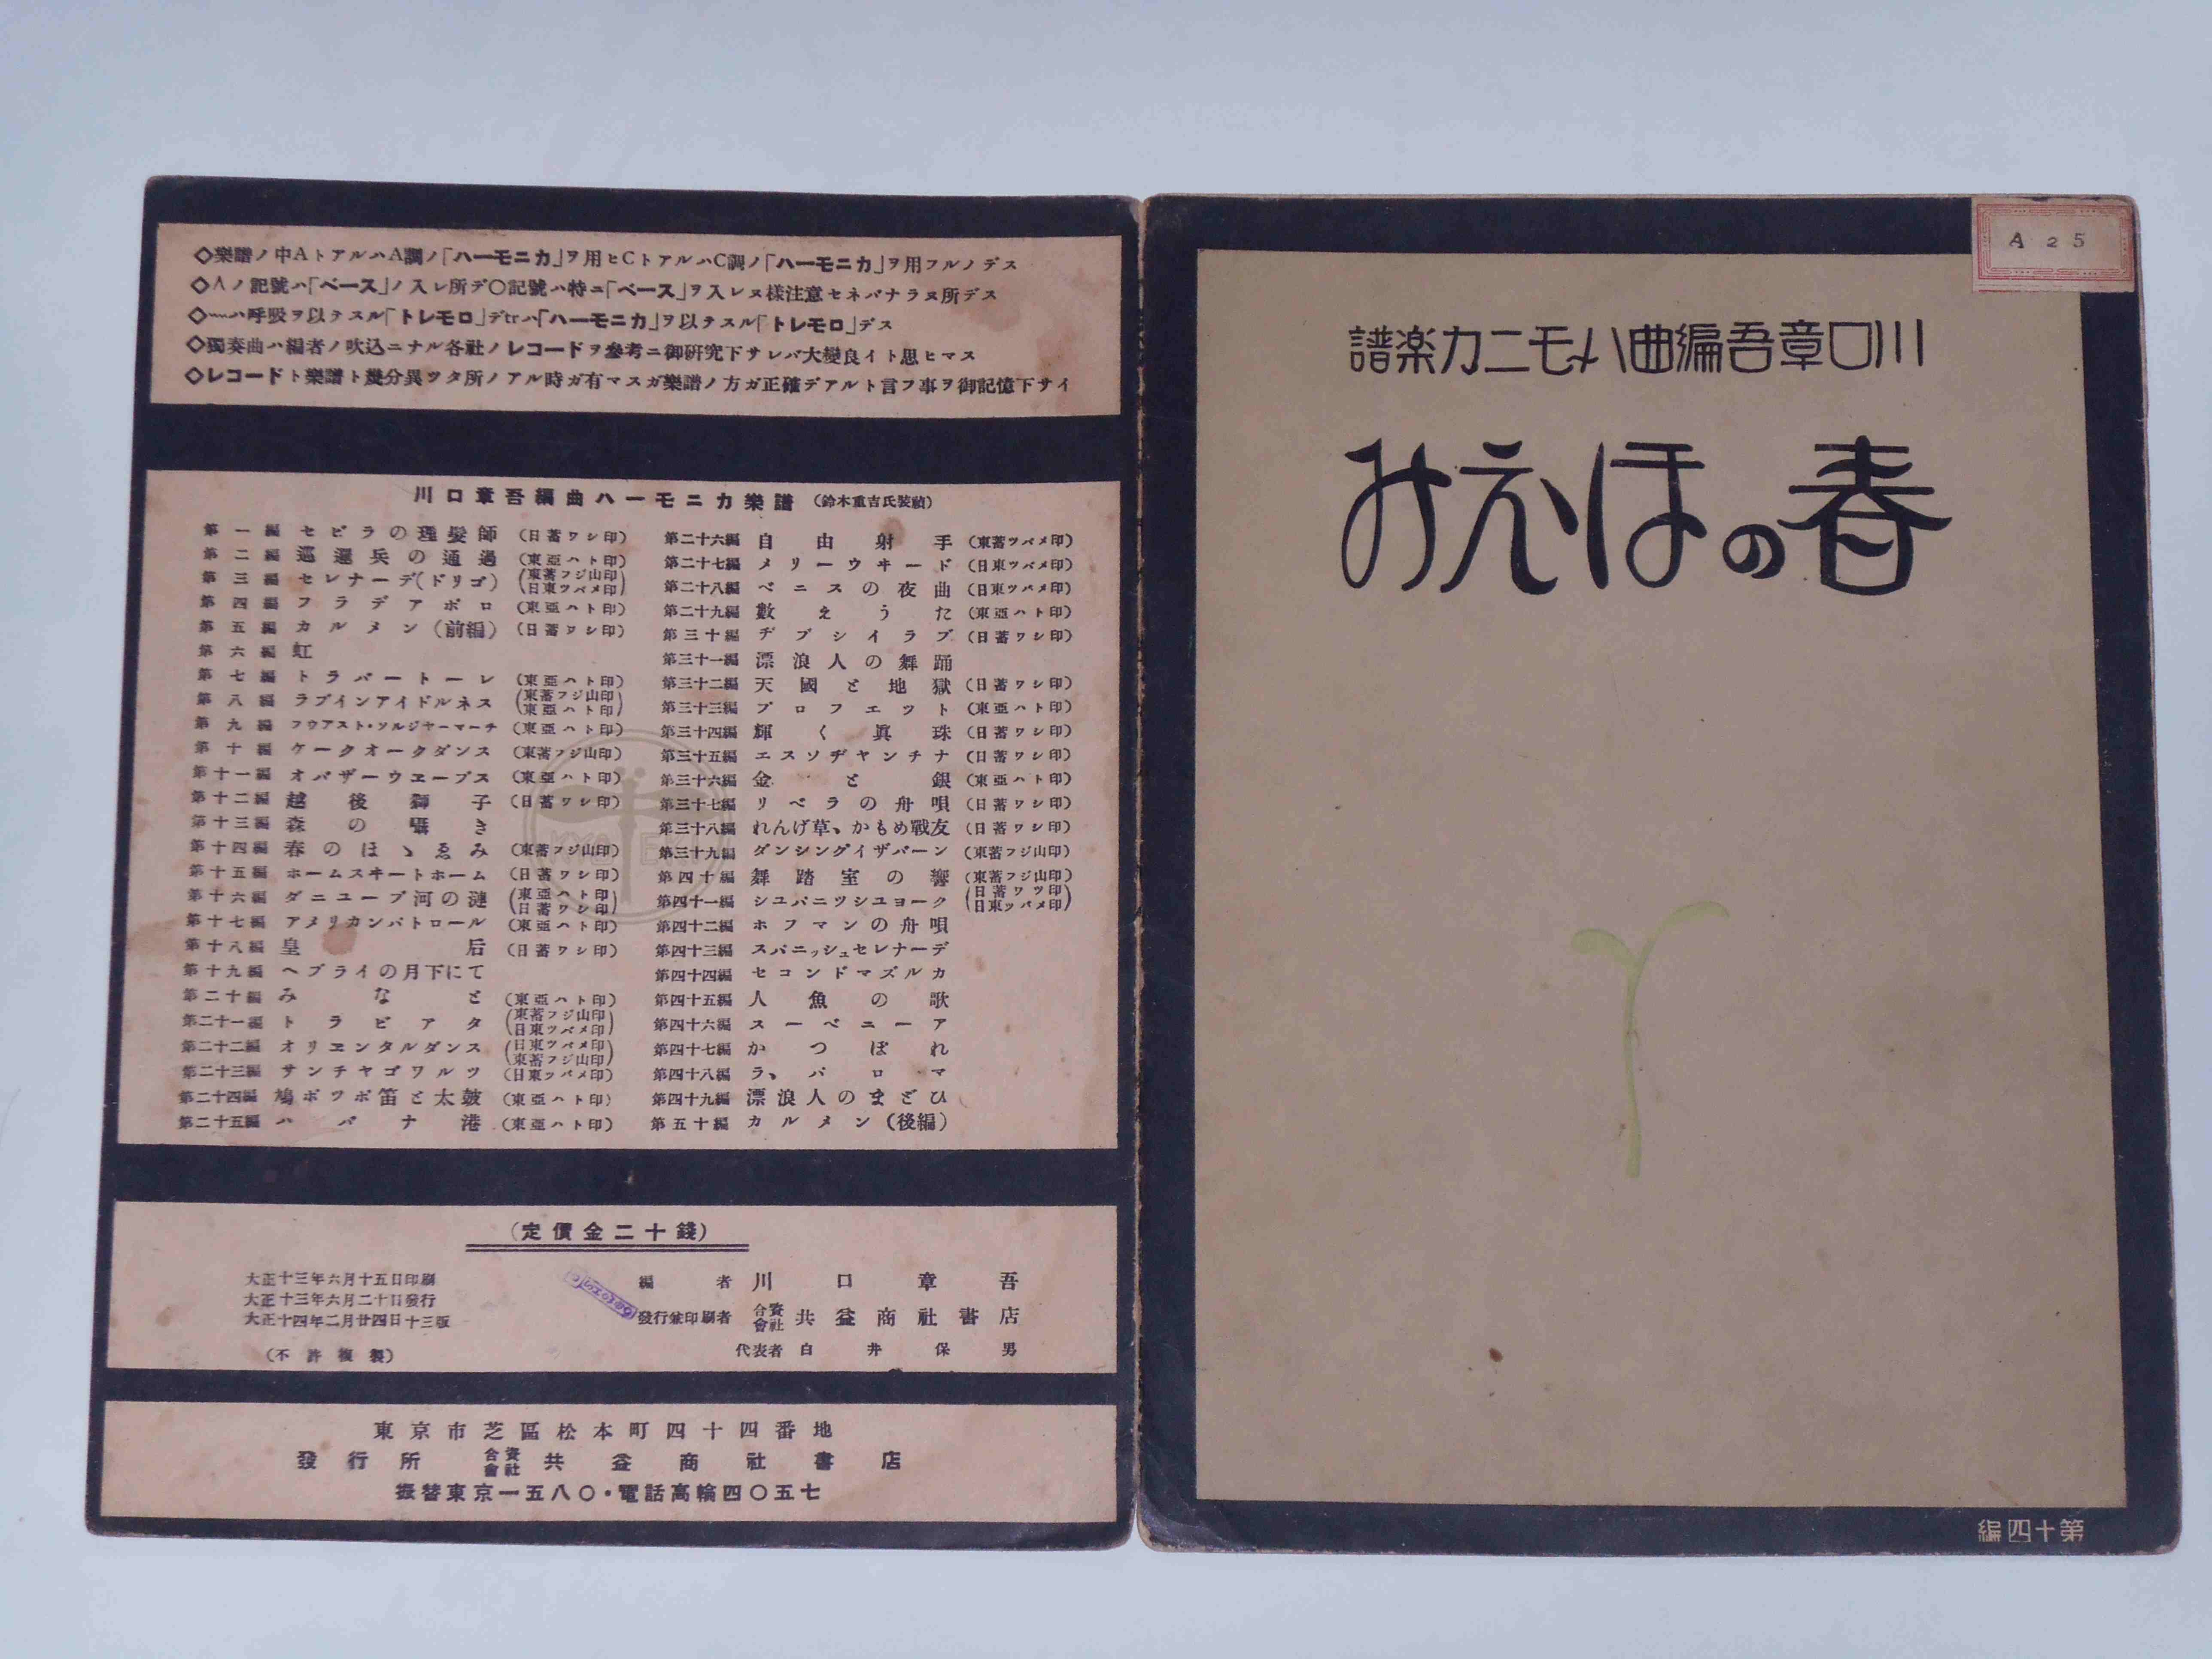 ◇樂譜ノ中AトアルハA調ノ「ハーモニカ」ヲ用ヒCトアルハC調ノ「ハーモニカ」ヲ用フルノデス
◇∧ノ記號ハ「ベース」ノ入レ所デ〇記號ハ特ニ「ベース」ヲ入レヌ様注意セネバナラヌ所デス
◇﹏ハ呼吸ヲ以テスル「トレモロ」デtrハ「ハーモニカ」ヲ以テスル「トレモロ」デス
◇獨奏曲ハ編者ノ吹込ニナル各社ノレコードヲ參考ニ御硏究下サレバ大變良イト思ヒマス
◇レコードト樂譜ト幾分異ツタ所ノアル時ガ有マスガ樂譜ノ方ガ正確デアルト言フ事ヲ御記憶下サイ
川口章吾編曲ハーモニカ樂譜（鈴木重吉氏裝幀）
第一編 セビラの理髪師（日蓄ワシ印）
第二編 巡邏兵の通過（東亞ハト印）
第三編 セレナーデ(ドリゴ)（東蓄フジ山印 日東ツバメ印）
第四編 フラデアボロ（東亞ハト印）
第五編 カルメン（前編）（日蓄ワシ印）
第六編 虹
第七編 トラバートーレ（東亞ハト印）
第八編 ラブインアイドルネス（東蓄フジ山印 東亞ハト印）
第九編 フウアスト・ソルジヤーマーチ（東亞ハト印）
第十編 ケークオークダンス（東蓄フジ山印）
第十一編 オバザーウエーブス（東亞ハト印）
第十二編 越後獅子（日蓄ワシ印）
第十三編 森の囁き
第十四編 春のほゝゑみ（東蓄フジ山印）
第十五編 ホームスヰートホーム（日蓄ワシ印）
第十六編 ダニユーブ河の漣（東亞ハト印 日蓄ワシ印）
第十七編 アメリカンパトロール（東亞ハト印）
第十八編 皇后（日蓄ワシ印）
第十九編 ヘブライの月下にて
第二十編 みなと（東亞ハト印）
第二十一編 トラビアタ（東蓄フジ山印 日東ツバメ印）
第二十二編 オリエンタルダンス（日東ツバメ印 東蓄フジ山印）
第二十三編 サンチヤゴワルツ（日東ツバメ印）
第二十四編 鳩ポツポ笛と太皷（東亞ハト印）
第二十五編 ハバナ港（東亞ハト印）
第二十六編 自由射手（東蓄ツバメ印）
第二十七編 メリーウヰード（日東ツバメ印）
第二十八編 ベニスの夜曲（日東ツバメ印）
第二十九編 數えうた（東亞ハト印）
第三十編 ヂプシイラブ（日蓄ワシ印）
第三十一編 漂浪人の舞踊
第三十二編 天國と地獄（日蓄ワシ印）
第三十三編 プロフエツト（東亞ハト印）
第三十四編 輝く眞珠（日蓄ワシ印）
第三十五編 エスソヂヤンチナ（日蓄ワシ印）
第三十六編 金と銀（東亞ハト印）
第三十七編 リベラの舟唄（日蓄ワシ印）
第三十八編 れんげ草、かもめ戰友（日蓄ワシ印）
第三十九編 ダンシングイザバーン（東蓄フジ山印）
第四十編 舞踏室の響（東蓄フジ山印）
第四十一編 シユパニツシユヨーク（日蓄ワツ印 日東ツバメ印）
第四十二編 ホフマンの舟唄
第四十三編 スパニッシュセレナーデ
第四十四編 セコンドマズルカ
第四十五編 人魚の歌
第四十六編 スーベニーア
第四十七編 かつぽれ
第四十八編 ラ、パロマ
第四十九編 漂浪人のまどひ
第五十編 カルメン（後編）
（定價金二十錢）
大正十三年六月十五日印刷
大正十三年六月二十日發行
大正十四年二月廿四日十三版
（不許複製）
編者 川口章吾
發行兼印刷者 合資會社 共益商社書店
代表者 白井保男
東京市芝區松本町四十四番地
發行所 合資會社 共益商社書店
振替東京一五八〇・電話高輪四〇五七
A 25
川口章吾編曲ハーモニカ楽譜
春のほえみ
第十四編